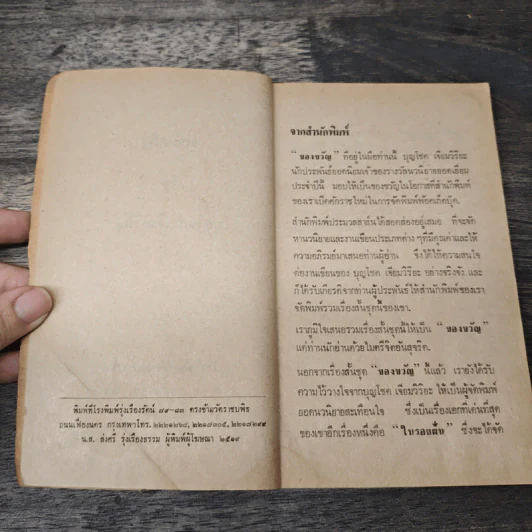 พิมพ์ที่โรงพิมพ์รุ่งเรืองรัตน์ ๘๕-๘๗ ตรงข้ามวัดราชบพิธ
ถนนเฟื่องนคร กรุงเทพฯ โทร.
น.ส. ส่งศรี รุ่งเรืองธรรม ผู้พิมพ์ผู้โฆษณา ๒๕๑๙
จากสำนักพิมพ์
“ของขวัญ” ที่อยู่ในมือท่านนี้ บุญโชค เจียมวิริยะ
นักประพันธ์ยอดนิยมเจ้าของรางวัลนวนิยายยอดเยี่ยม
ประจำปีนี้ มอบให้เป็นของขวัญในโอกาสที่สำนักพิมพ์
ของเราเปิดศักราชใหม่ในการจัดพิมพ์พ๊อคเก็ตบุ๊ค
สำนักพิมพ์ประมวลสาส์นได้สอดส่องอยู่เสมอ ที่จะจัด
หานวนิยายและงานเขียนประเภทต่าง ๆ ที่มีคุณค่าและให้
ความอภิรมย์มาเสนอท่านผู้อ่าน ซึ่งได้ให้ความสนใจ
ต่องานเขียนของ บุญโชค เจียมวิริยะ อย่างจริงจัง และ
ก็ได้รับเกียรติจากท่านผู้ประพันธ์ ให้สำนักพิมพ์ของเรา
จัดพิมพ์รวมเรื่องสั้นชุดนี้ของเขา
เราภูมิใจเสนอรวมเรื่องสั้นชุดนี้ให้เป็น “ของขวัญ”
แด่ท่านนักอ่านด้วยไมตรีจิตอันสุจริต
นอกจากเรื่องสั้นชุด “ของขวัญ” นี้แล้ว เรายังได้รับ
ความไว้วางใจจากบุญโชค เจียมวิริยะ ให้เป็นผู้จัดพิมพ์
ยอดนวนิยายสะเทือนใจ ซึ่งเป็นเรื่องเอกที่เด่นที่สุด
ของเขาอีกเรื่องหนึ่งคือ “ในรอยฝัน” ซึ่งจะได้จัด